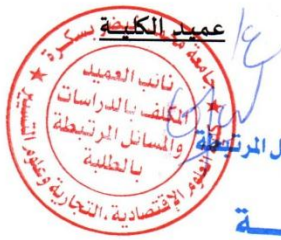 عميد الكلية
جامعة محمد خيضر بسكرة
نائب العميد
المكلف بالدراسات
والمسائل المرتبطة
بالطلبة
العلوم الإقتصادية، التجارية وعلوم التسيير
ل المرتبطة
ـة